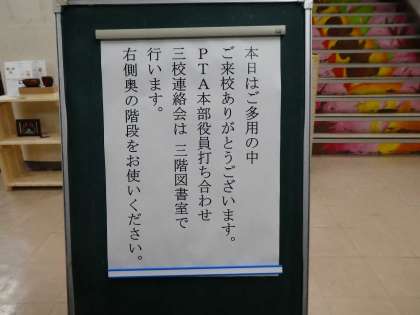 本日はご多用の中
ご来校ありがとうございます。
PTA本部役員打ち合わせ
三校連絡会は 三階図書室で
行います。
右側奥の階段をお使いください。